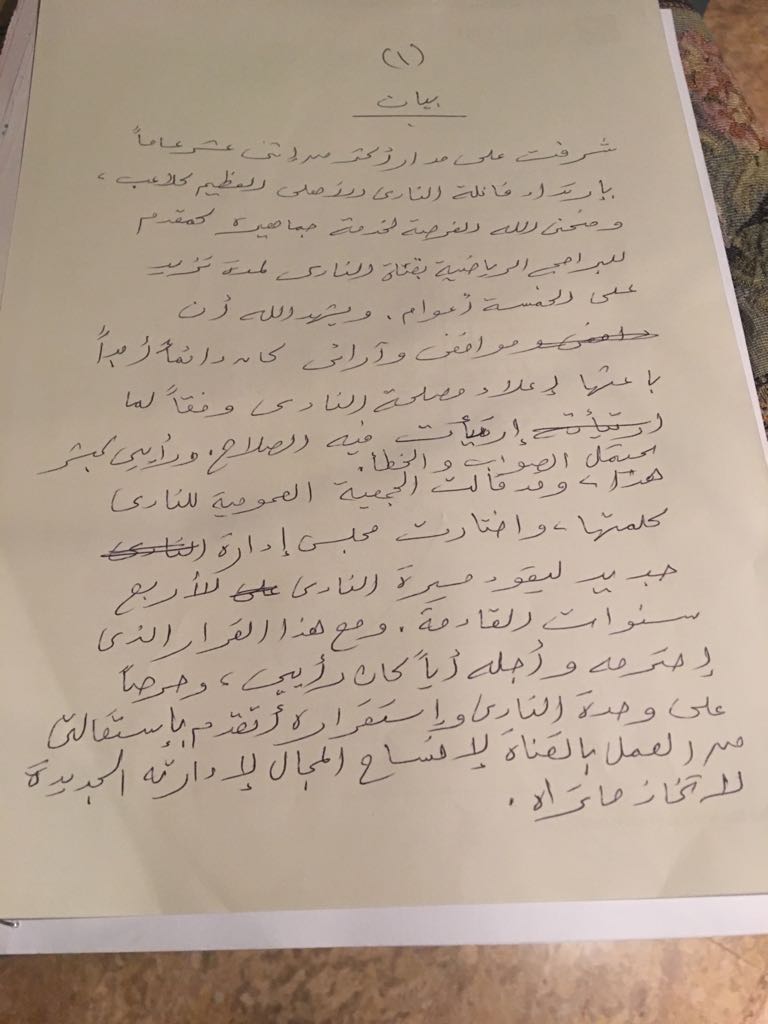 (١)
بيان
شرفت على مدار أكثر من إثنى عشر عاماً
بإرتداء فانلة النادى الأهلى العظيم كلاعب ،
ومنحنى الله الفرصة لخدمة جماهيره كمقدم
للبرامج الرياضية بقناة النادى لمدة تزيد
على الخمسة أعوام . ويشهد الله أن
مواقفى وآرائى كان دائماً أبداً
باعثها إعلاء مصلحة النادى وفقاً لما
ارتيأت إرتيأت فيه الصلاح . ورأيى كبشر
يحتمل الصواب والخطأ .
هذا ، وقد قالت الجمعية العمومية للنادى
كلمتها ، واختارت مجلس إدارة النادى
جديد ليقود مسيرة النادى على للأربع
سنوات القادمة . ومع هذا القرار الذى
إحترمه وأجله أياً كان رأيى ، وحرصاً
على وحدة النادى وإستقراره أتقدم بإستقالتى
من العمل بالقناة لإفساح المجال لإدارته الجديدة
لاتخاذ ما تراه .